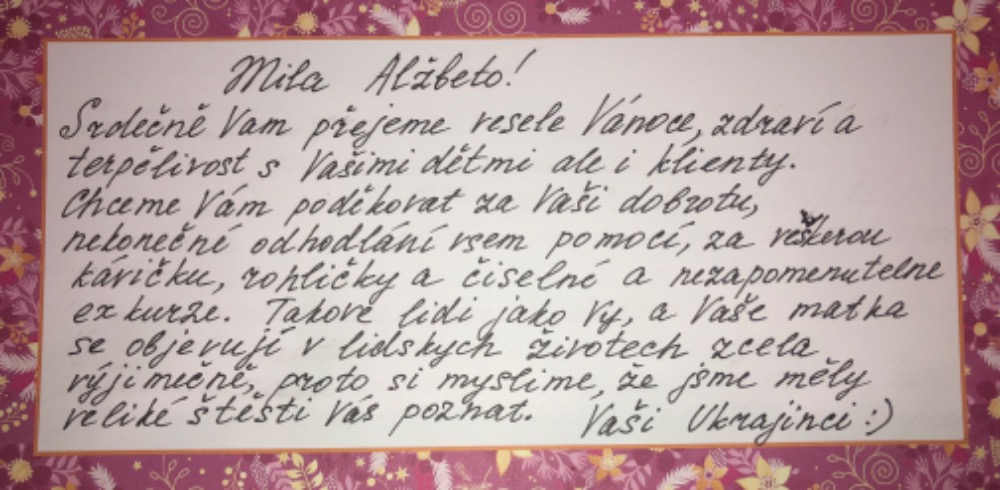 Mila Alžbeto!
Srdečně Vam přejeme vesele Vánoce, zdraví a
terpělivost s Vašimi dětmi ale i klienty.
Chceme Vám poděkovat za Vaši dobrotu,
nekonečné odhodlání vsem pomocí, za veškerou
kávičku, rohličky a čiselné a nezapomenutelne
exkurze. Takové lidi jako Vy, a Vaše matka
se objevují v lidskych životech zcela
výjimečně, proto si myslime, že jsme měly
veliké štěsti Vás poznat. Vaši Ukrajinci :)